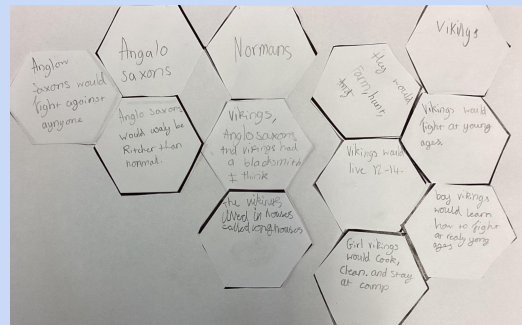 Anglow
saxons would
fight against
agnyone
Angalo
saxons
Anglo saxons
would usaly be
Ritcher than
normal.
Normans
Vikings,
Anglo saxons
and vikings had
a blacksmith
I think
The vikings
lived in houses
called longhouses
they would
farm, hunt,
Vikings would
live 12-14.
Girl vikings
would Cook,
Clean, and stay
at camp
Vikings
Vikings would
fight at young
ages.
boy vikings
would learn
how to fight
at realy yong
ages